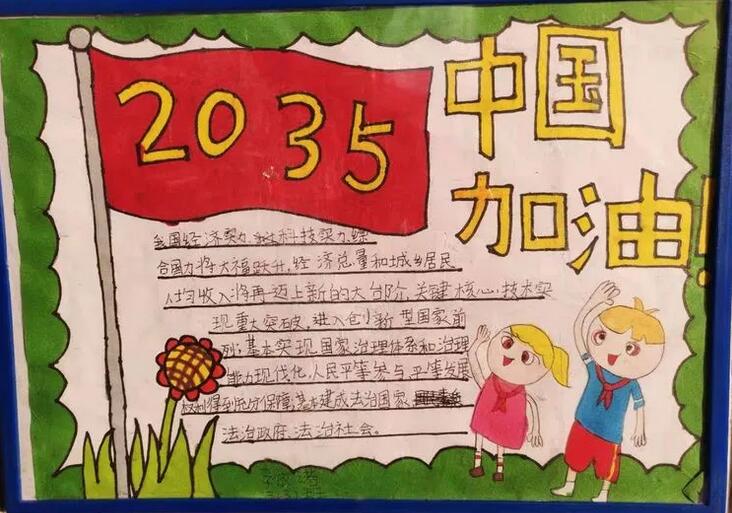 2035
中国
加油!
我国经济实力、科技实力、综
合国力将大幅跃升,经济总量和城乡居民
人均收入将再迈上新的大台阶,关键核心技术实
现重大突破,进入创新型国家前
列;基本实现国家治理体系和治理
能力现代化,人民平等参与、平等发展
权利得到充分保障,基本建成法治国家、
法治政府、法治社会。